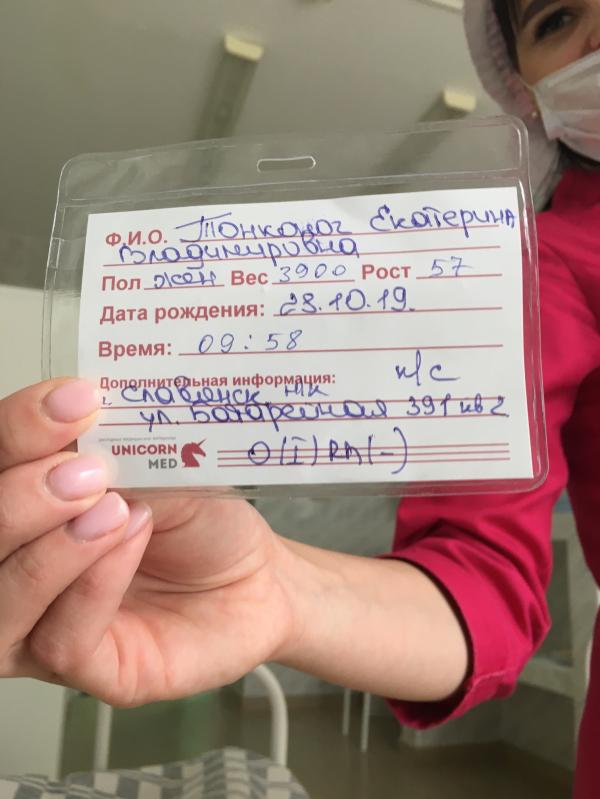 Ф.И.О. Тонконог Екатерина
Владимировна
Пол жен Вес 3900 Рост 57
Дата рождения: 23.10.19.
Время: 09:58
Дополнительная информация: к/с
г. Славянск н/к
ул. Батарейная 391 кв 2
UNICORN
MED
O(I) Rh(-)